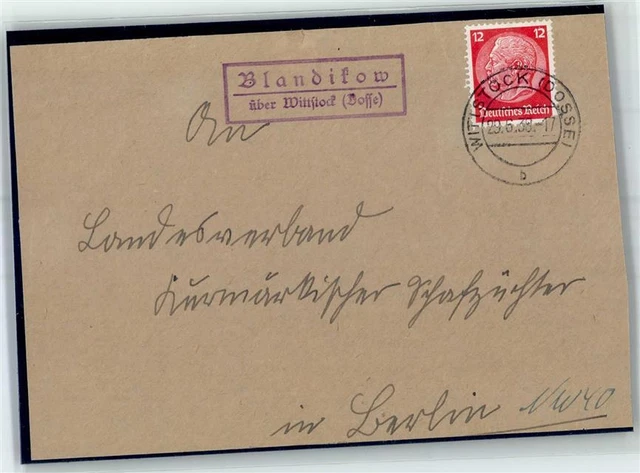 Blandikow
über Wittstock (Dosse)
12 12
Deutsches Reich
WITTSTOCK (DOSSE)
29.6.38.-17
b
An
Landesverband
Kurmärkischer Schafzüchter
in Berlin NW40